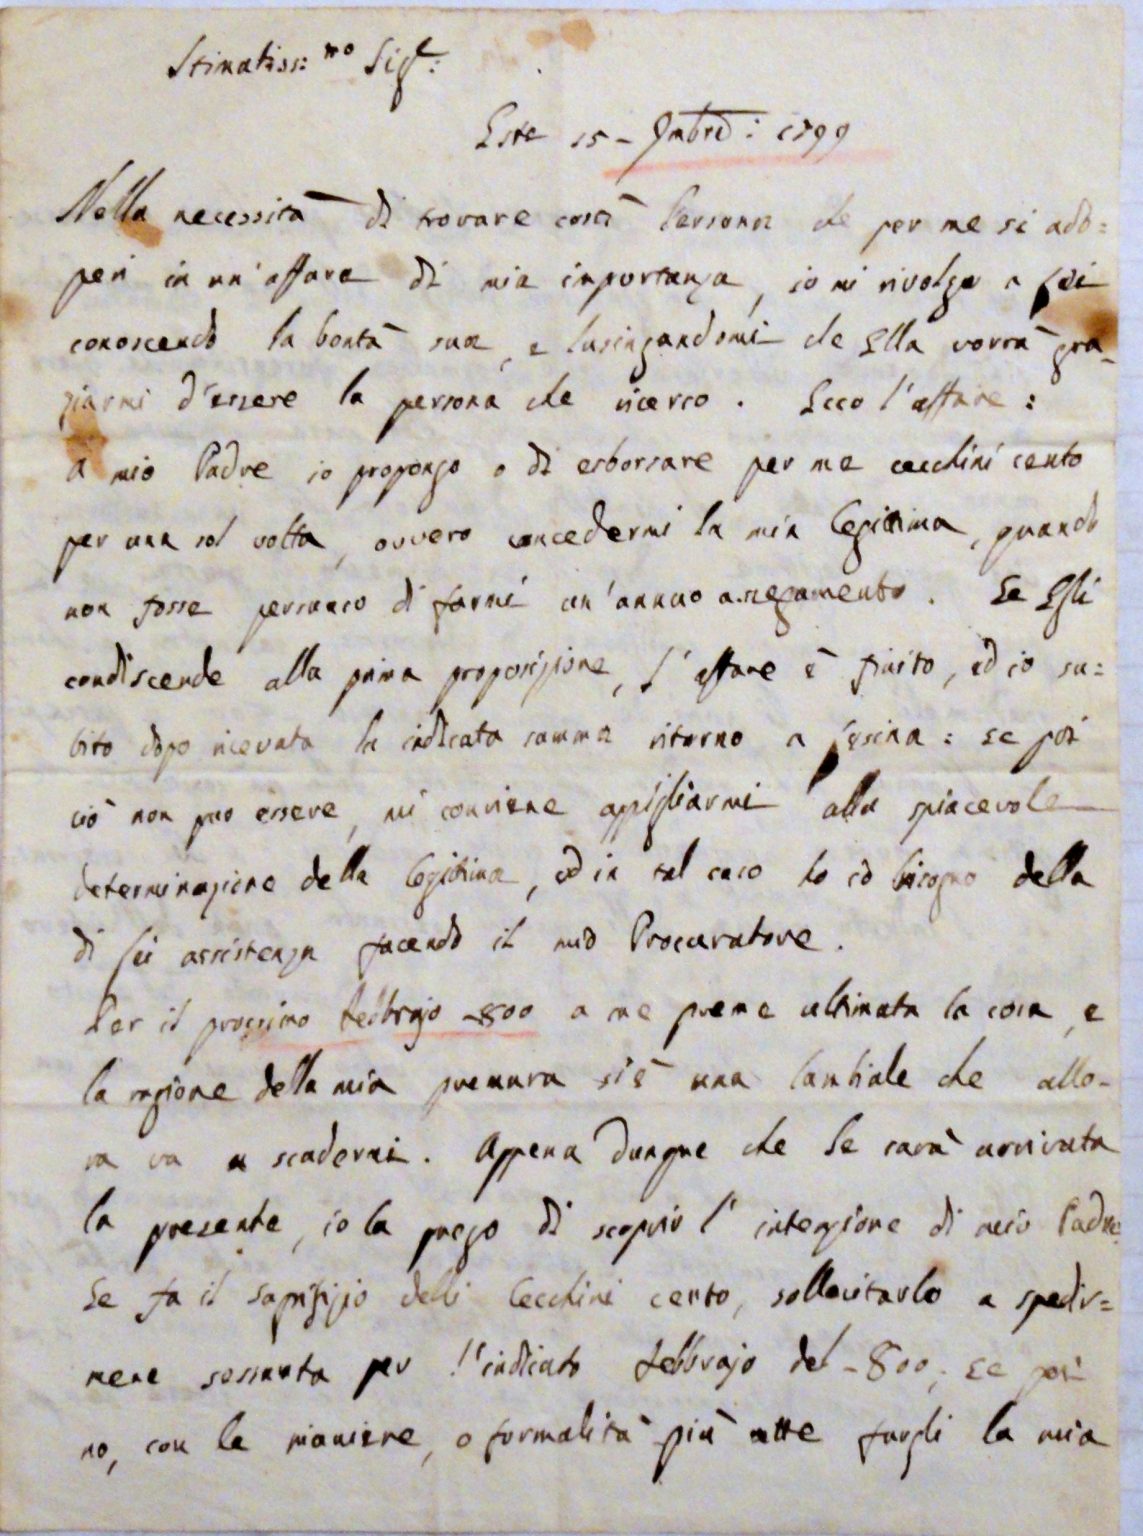 Stimatiss:mo Sigr:
Este 15 - 9mbre: 1799
Nella necessità di trovare costì Persona che per me si ado=
peri in un' affare di mia importanza, io mi rivolgo a Lei
conoscendo la bontà sua, e lusingandomi che Ella vorrà gra=
ziarmi d'essere la persona che ricerco. Ecco l'affare:
A mio Padre io propongo o di esborsare per me cecchini cento
per una sol volta, ovvero concedermi la mia Legittima, quando
non fosse persuaso di farmi un'annuo assegamento. Se Egli
condiscende alla prima proposizione, l'affare è finito, ed io su=
bito dopo ricevuta la indicata somma ritorno a : se poi
ciò non può essere, mi conviene appigliarmi alla spiacevole
determinazione della Legittima, ed in tal caso ho io bisogno della
di Lei assistenza facendo il mio Procuratore.
Per il prossimo Febbrajo -800 a me preme ultimata la cosa, e
la ragione della mia premura si è una Cambiale che allo-
ra va a scadermi. Appena dunque che Le sarà arrivata
la presente, io la prego di scoprir l'intenzione di mio Padre
Se fa il sagrifizio delli Cecchini cento, sollecitarlo a spedir=
mene sessanta per l'indicato Febbrajo del -800; se poi
no, con le maniere, o formalità più atte fargli la mia